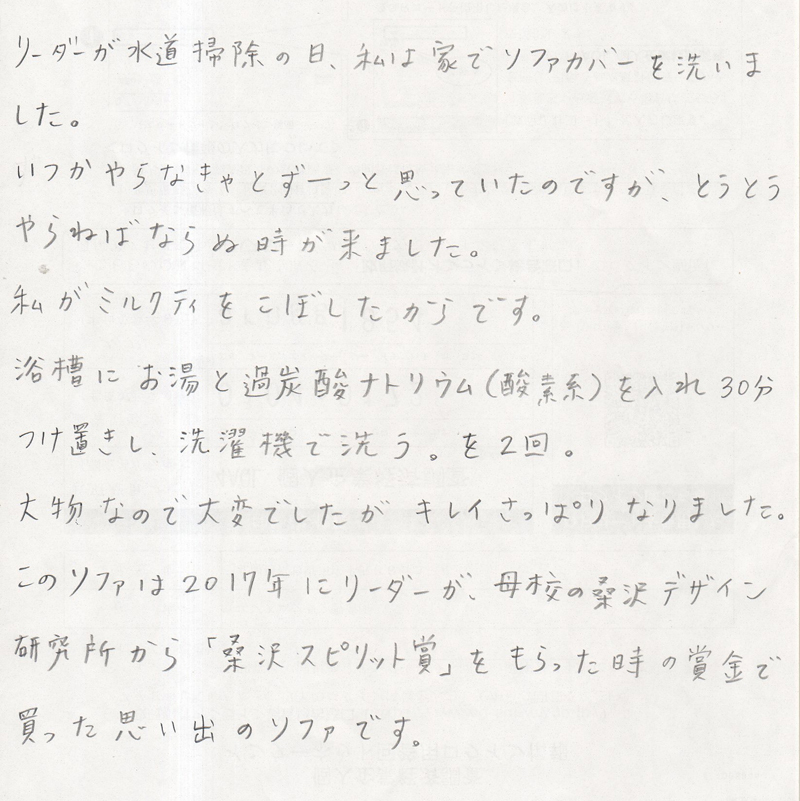 リーダーが水道掃除の日、私は家でソファカバーを洗いま
した。
いつかやらなきゃとずーっと思っていたのですが、とうとう
やらねばならぬ時が来ました。
私がミルクティをこぼしたからです。
浴槽にお湯と過炭酸ナトリウム(酸素系)を入れ30分
つけ置きし、洗濯機で洗う。を2回。
大物なので大変でしたがキレイさっぱりなりました。
このソファは2017年にリーダーが、母校の桑沢デザイン
研究所から「桑沢スピリット賞」をもらった時の賞金で
買った思い出のソファです。